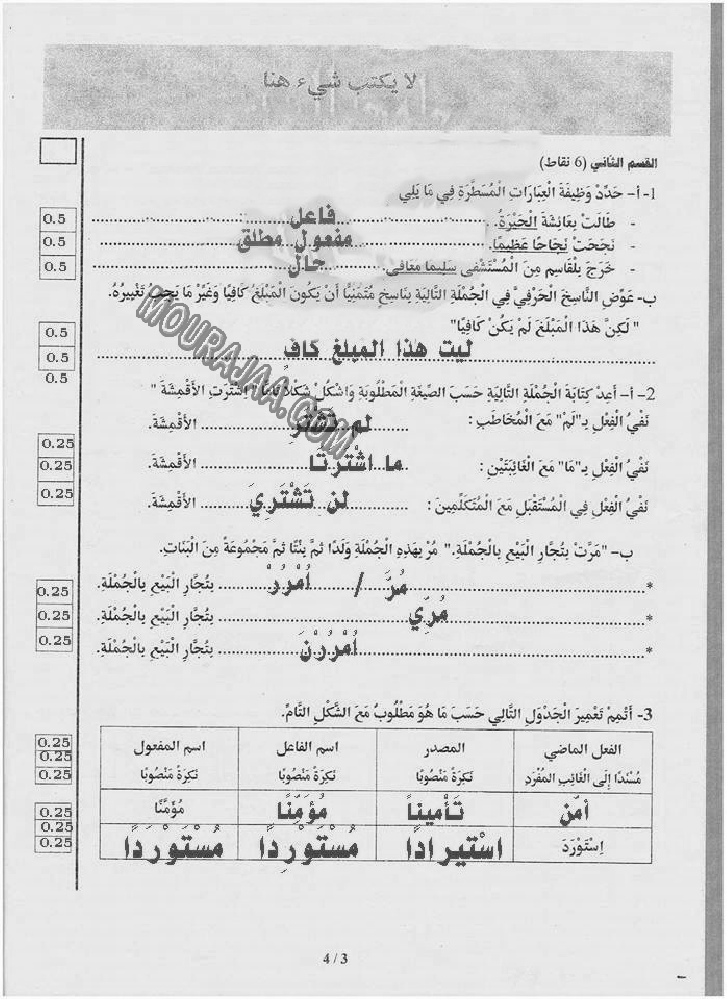 لا يكتب شيء هنا
القسم الثاني (6 نقاط)
1- أ- حَدِّدْ وَظِيفَةَ الْعِبَارَاتِ الْمُسَطَّرَةِ فِي مَا يَلِي
0.5 - طَالَتْ بِعَائِشَةَ الْحَيْرَةُ. فاعل
0.5 - نَجَحَتْ نَجَاحًا عَظِيمًا. مفعول مطلق
0.5 - خَرَجَ بِلْقَاسِم مِنَ الْمُسْتَشْفَى سَلِيمًا مُعَافًى. حال
ب- عَوِّضِ النَّاسِخَ الْحَرْفِيَّ فِي الْجُمْلَةِ التَّالِيَةِ بِنَاسِخٍ مُتَمَنِّيًا أَنْ يَكُونَ الْمَبْلَغُ كَافِيًا وَغَيِّرْ مَا يَجِبُ تَغْيِيرُهُ.
0.5 " لَكِنَّ هَذَا الْمَبْلَغَ لَمْ يَكُنْ كَافِيًا"
0.5 ليت هذا المبلغ كافٍ
0.5
2- أ- أَعِدْ كِتَابَةَ الْجُمْلَةِ التَّالِيَةِ حَسَبَ الصِّيغَةِ الْمَطْلُوبَةِ وَاشْكُلْ شَكْلًا تَامًّا " اِشْتَرَتِ الأَقْمِشَةَ "
0.25 نَفْيُ الْفِعْلِ بِـ"لَمْ" مَعَ الْمُخَاطَبِ: لم تشتر الأَقْمِشَةَ.
0.25 نَفْيُ الْفِعْلِ بِـ"مَا" مَعَ الْغَائِبَتَيْنِ: ما اشْترتا الأَقْمِشَةَ.
0.25 نَفْيُ الْفِعْلِ فِي الْمُسْتَقْبَلِ مَعَ الْمُتَكَلِّمِينَ: لن تَشْتَرِيَ الأَقْمِشَةَ.
ب- "مَرَّتْ بِتُجَّارِ الْبَيْعِ بِالْجُمْلَةِ." مُرْ بِهَذِهِ الْجُمْلَةِ وَلَدًا ثُمَّ بِنْتًا ثُمَّ مَجْمُوعَةً مِنَ الْبَنَاتِ.
0.25 * مُرَّ / اُمْرُرْ بِتُجَّارِ الْبَيْعِ بِالْجُمْلَةِ.
0.25 * مُرِّي بِتُجَّارِ الْبَيْعِ بِالْجُمْلَةِ.
0.25 * اُمْرُرْنَ بِتُجَّارِ الْبَيْعِ بِالْجُمْلَةِ.
3- أَتْمِمْ تَعْمِيرَ الْجَدْوَلِ التَّالِي حَسَبَ مَا هُوَ مَطْلُوبٌ مَعَ الشَّكْلِ التَّامِّ.
0.25 الفعل الماضي المصدر اسم الفاعل اسم المفعول
0.25
0.25 مُسْنَدًا إِلَى الْغَائِبِ الْمُفْرَدِ نَكِرَةً مَنْصُوبًا نَكِرَةً مَنْصُوبًا نَكِرَةً مَنْصُوبًا
0.25 أمّن تَأْمِيناً مُؤَمِّنًا مُؤَمَّنًا
0.25
0.25 اِسْتَوْرَدَ اسْتِيرادًا مُسْتَوْرِدًا مُسْتَوْرَدًا
MOURAJAA.COM
4/3